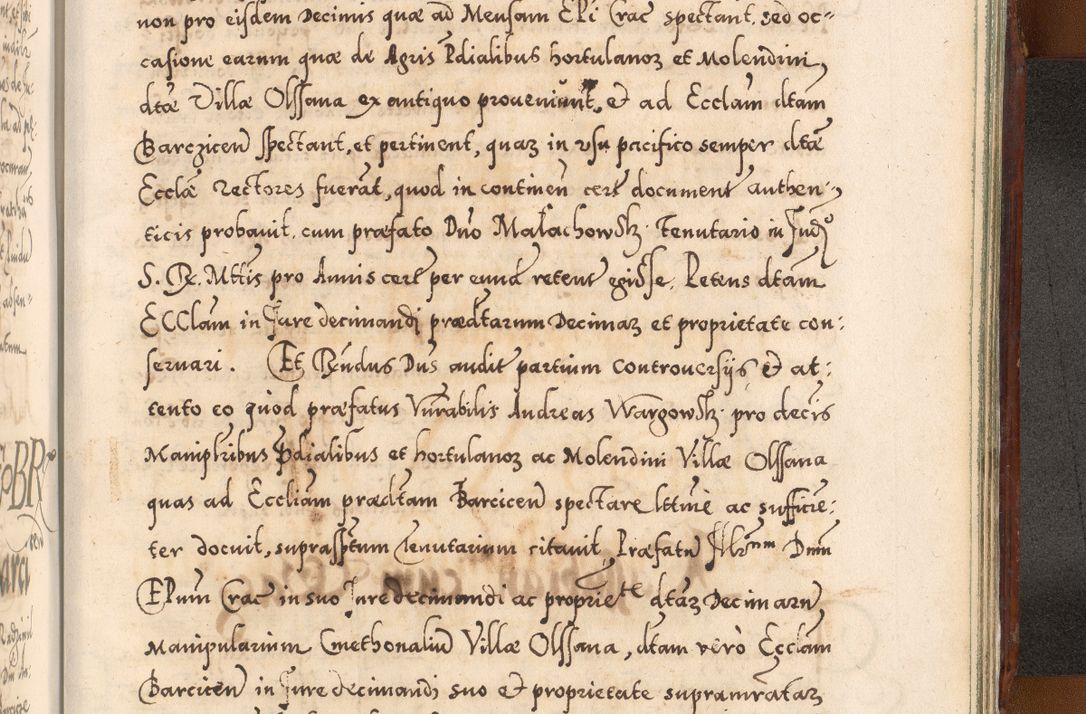 non pro eisdem Decimis quæ ad Mensam EPi Crac̄ spectant, sed oc-
casione earum quæ de Agris Pdialibus hortulanoꝝ et Molendini,
dtæ Villæ Olssana ex antiquo proveniunt, & ad Ecclam dtam
Barczicen̄ spectant, et pertinent, quaꝝ in usu pacifico semper dtæ
Ecclæ Rectores fuerāt, quod in continen̄ cert document authen-
ticis probavit. cum præfato Dno Małachowsky Tenutario in Jud:
S. R. Mttis pro Annis cert per eund retent egisse. Petens dtam
ECClam in Jure decimandi prædtarum Decimaꝝ et proprietate con-
servari. Et Rndus Dns audit partium controversijs & at-
tento eo quod præfatus Vnrabilis Andreas Wargowsky pro decis
Maniplribus Pdialibus et hortulanoꝝ ac Molendini Villæ Olssana
quas ad Eccliam prædtam Barcicen̄ spectare lttime ac sufficie-
ter docuit, suprasptum Tenutarium citavit, Præfatū Illrem Dnm
EPum Crac̄ in suo Jure decimandi ac proprietē dtaꝝ Decimarū
Manipularium Cmethonaliū Villæ Olssana, dtam verò Ecclam
Barcicen̄ in Jure decimandi suo & proprietate supramrataꝝ